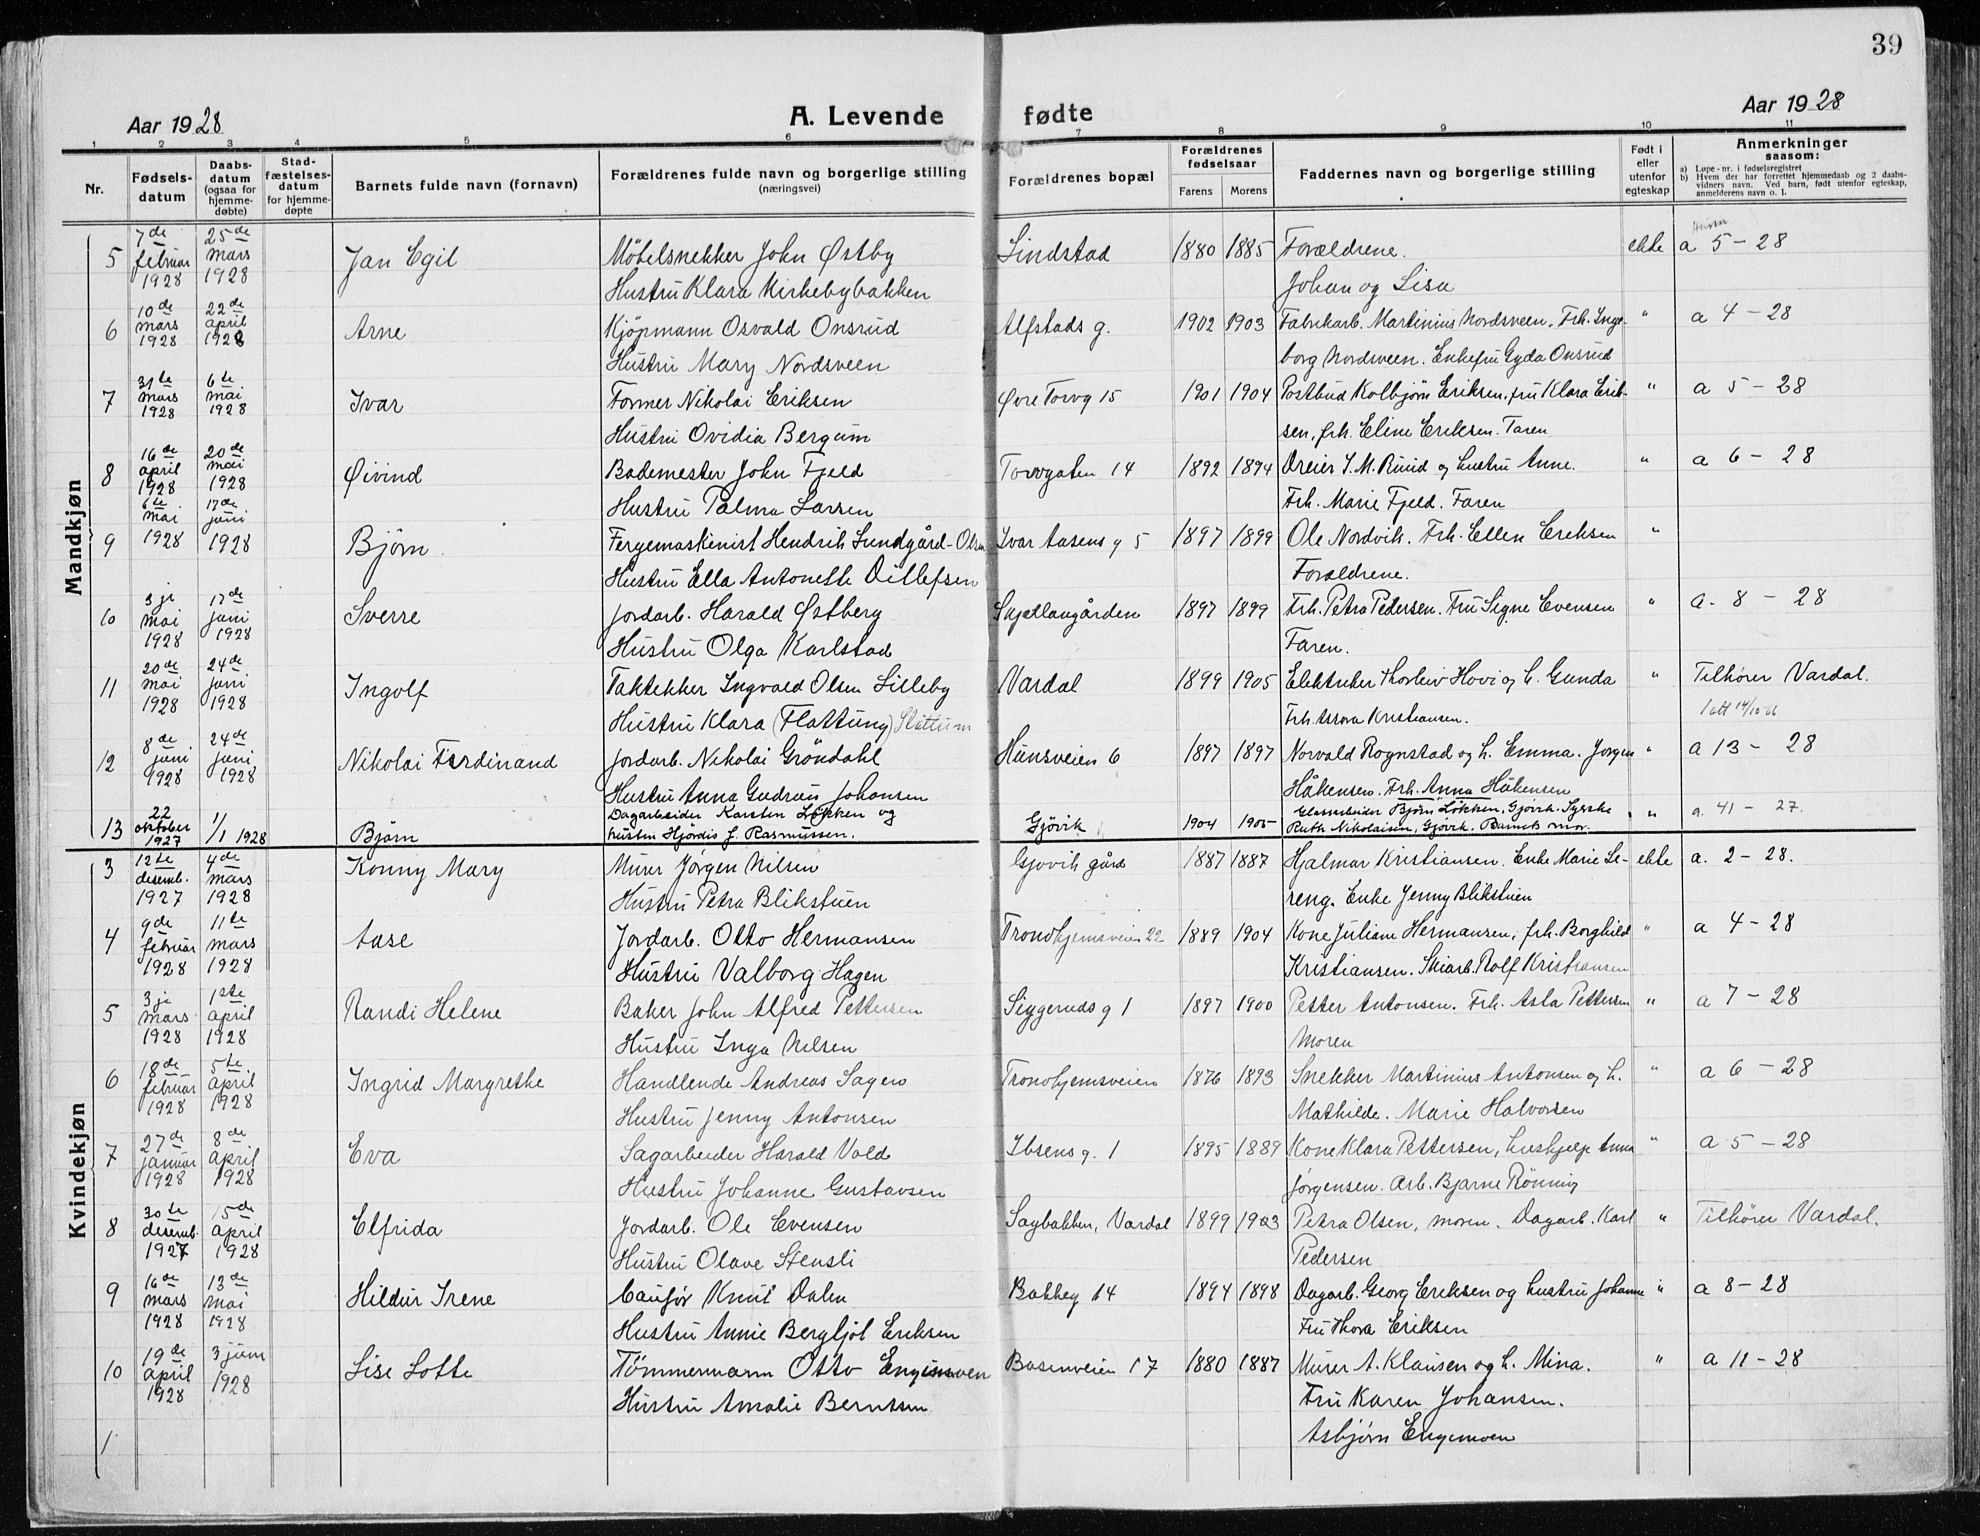 39
Aar 1928
A. Levende fødte
Aar 1928
1 2 3 4 5 6 7 8 9 10 11
Nr.
Fødsels-
datum
Daabs-
datum
(ogsaa for
hjemme-
døbte)
Stad-
fæstelses-
datum
for hjemme-
døpte
Barnets fulde navn (fornavn)
Forældrenes fulde navn og borgerlige stilling
(næringsvei)
Forældrenes bopæl
Forældrenes
fødselsaar
Farens Morens
Faddernes navn og borgerlige stilling
Født i
eller
utenfor
egteskap
Anmerkninger
saasom:
a) Løpe-nr. i fødselsregistret
b) Hvem der har forrettet hjemmedaab og 2 daabs-
vidners navn. Ved barn, født utenfor egteskap,
anmelderens navn o. l.
Mandkjøn
5 7de februar 1928 25de mars 1928 Jan Egil Møbelsnekker John Østby Lindstad 1880 1885 Forældrene. ekte a 5 - 28
Hustru Klara Kirkebybakken Johan og Lisa
6 10de mars 1928 22de april 1928 Arne Kjöpmann Osvald Onsrud Alfstads g. 1902 1903 Fabrikarb. Martinius Nordsveen. Frk. Inge- " a 4 - 28
Hustru Mary Nordsveen borg Nordsveen. Enkefru Gyda Onsrud
7 31te mars 1928 6te mai 1928 Ivar Former Nikolai Eriksen Øvre Torvg 15 1901 1904 Postbud Kolbjørn Eriksen, fru Klara Erik- " a 5 - 28
Hustru Ovidia Bergum sen, frk. Eline Eriksen. Faren
8 16de april 1928 20de mai 1928 Øivind Bademester John Fjeld Torvgaten 14 1892 1894 Dreier I. M. Ruud og hustru Anne. " a 6 - 28
Hustru Palma Larsen Frk. Marie Fjeld. Faren
9 6te mai 1928 17de juni 1928 Bjørn Fergemaskinist Hendrik Lundgård-Olsen Ivar Aasens g 5 1897 1899 Ole Nordvik. Frk. Ellen Eriksen "
Hustru Ella Antonette Ditlefsen Forældrene.
10 3je mai 1928 17de juni 1928 Sverre Jordarb. Harald Østberg 1897 1899 Frk. Petra Pedersen. Fru Signe Evensen " a. 8 - 28
Hustru Olga Karlstad Faren.
11 20de mai 1928 24de juni 1928 Ingolf Taktekker Ingvald Olsen Lilleby Vardal 1899 1905 Elektriker Thorleiv Hovi og h. Gunda " Tilhører Vardal.
Hustru Klara (Flattung) Slattum Frk. Kristiansen.
12 8de juni 1928 24de juni 1928 Nikolai Ferdinand Jordarb. Nikolai Gröndahl Hunsveien 6 1897 1897 Norvald Rognstad og h. Emma. Jørgen " a 13 - 28
Hustru Anna Gudrun Johansen Håkensen. Frk. Anna Håkensen
13 22 oktober 1927 1/1 1928 Bjørn Dagarbeider Karsten Løkken og Gjövik 1904 1905 Glassarbeider Bjørn Løkken, Gjövik. " a. 41 - 27.
hustru Hjørdis J. Rasmussen. Ruth Nikolaisen, Gjövik. Barnets mor.
Kvindekjøn
3 12te desemb. 1927 4de mars 1928 Konny Mary Murer Jørgen Nilsen Gjövik gård 1887 1887 Hjalmar Kristiansen. Enke Marie Se- ekte a. 2 - 28.
Hustru Petra Blikstuen reng. Enke Jenny Blikstuen
4 9de februar 1928 11te mars 1928 Aase Jordarb. Otto Hermansen Trondhjemsveien 22 1889 1904 Kone Juliane Hermansen, frk. Borghild " a 4 - 28
Hustru Valborg Hagen Kristiansen. Skiarb. Rolf Kristiansen
5 3je mars 1928 1ste april 1928 Randi Helene Baker John Alfred Pettersen Siggeruds g 1 1897 1900 Petter Antonsen. Frk. Asla Pettersen " a 7 - 28
Hustru Inga Nilsen Moren
6 18de februar 1928 5te april 1928 Ingrid Margrethe Handlende Andreas Sagen Trondhjemsveien 1876 1893 Snekker Martinius Antonsen og h. " a 6 - 28
Hustru Jenny Antonsen Mathilde. Marie Halvorsen
7 27de januar 1928 8de april 1928 Eva Sagarbeider Harald Vold Ibsens g. 1 1895 1889 Kone Klara Pettersen, hushjelp Anna " a 5 - 28
Hustru Johanne Gustavsen Jørgensen. Arb. Bjarne Rönning
8 30te desemb. 1927 15de april 1928 Elfrida Jordarb. Ole Evensen Sagbakken, Vardal 1899 1903 Petra Olsen, moren. Dagarb. Karl " Tilhører Vardal.
Hustru Olave Stensli Pedersen
9 16de mars 1928 13de mai 1928 Hildur Irene Knut Dalen Bakkeg 14 1894 1898 Dagarb. Georg Eriksen og hustru Johanne " a 8 - 28
Hustru Annie Bergljot Eriksen Fru Thora Eriksen
10 19de april 1928 3 juni 1928 Lise Lotte Tömmermann Otto Engemoen Bassenveien 17 1880 1887 Murer A. Klausen og h. Mina. " a 11 - 28
Hustru Amalie Berntsen Fru Karen Johansen.
1 Asbjørn Engemoen